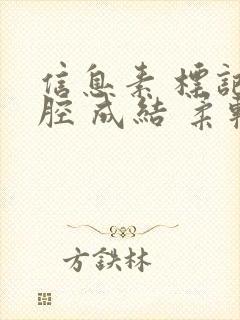 信息素 標記
腔 成結 柔軟
方鉄林